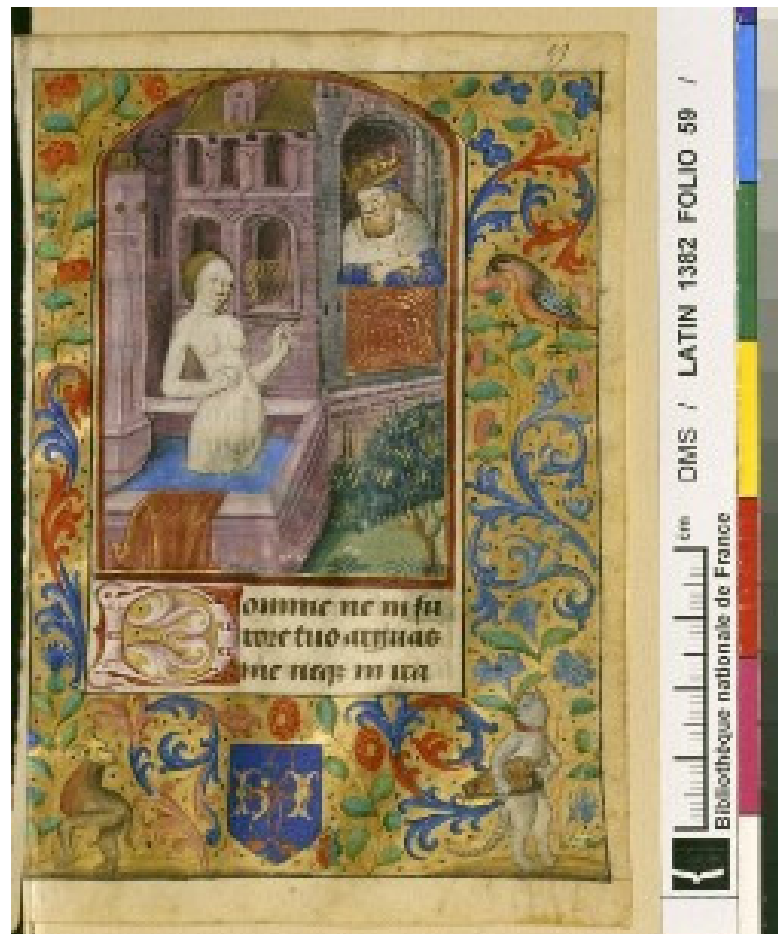 59
Domine ne in fu
rore tuo arguas
me neqз in ira
H I
DMS / LATIN 1382 FOLIO 59 /
cm
Bibliothèque nationale de France